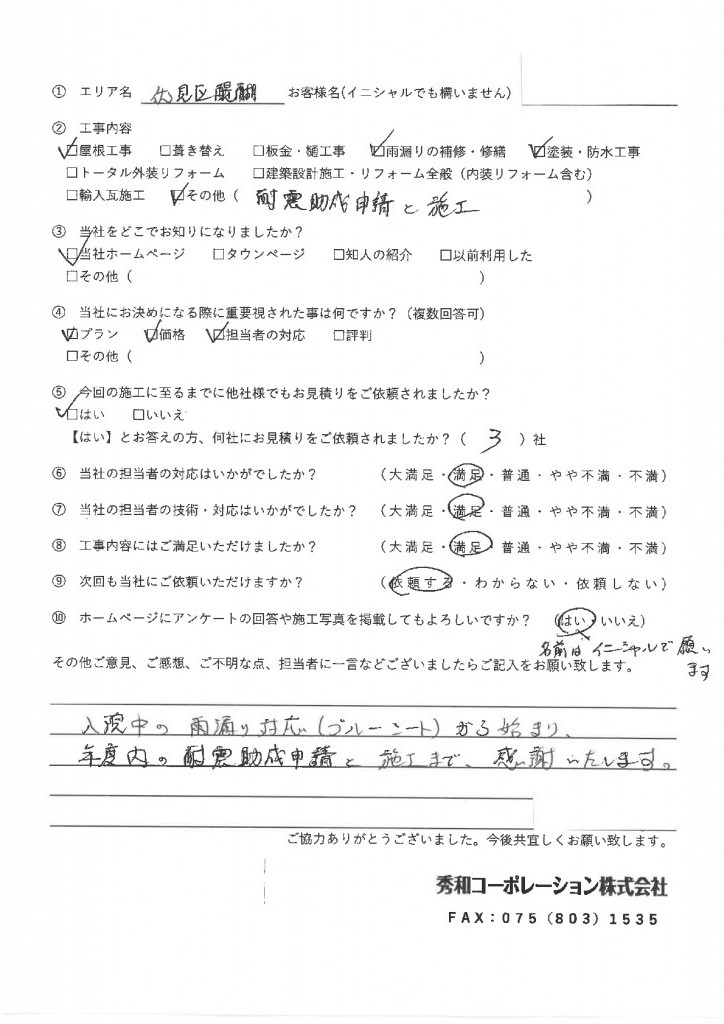 ① エリア名 伏見区醍醐 お客様名(イニシャルでも構いません)
② 工事内容
☑屋根工事 □葺き替え □板金・樋工事 ☑雨漏りの補修・修繕 ☑塗装・防水工事
□トータル外装リフォーム □建築設計施工・リフォーム全般(内装リフォーム含む)
□輸入瓦施工 ☑その他( 耐震助成申請と施工 )
③ 当社をどこでお知りになりましたか?
☑当社ホームページ □タウンページ □知人の紹介 □以前利用した
□その他( )
④ 当社にお決めになる際に重要視された事は何ですか?(複数回答可)
☑プラン ☑価格 ☑担当者の対応 □評判
□その他( )
⑤ 今回の施工に至るまでに他社様でもお見積りをご依頼されましたか?
☑はい □いいえ
【はい】とお答えの方、何社にお見積りをご依頼されましたか?( 3 )社
⑥ 当社の担当者の対応はいかがでしたか? (大満足・満足・普通・やや不満・不満)
⑦ 当社の担当者の技術・対応はいかがでしたか? (大満足・満足・普通・やや不満・不満)
⑧ 工事内容にはご満足いただけましたか? (大満足・満足・普通・やや不満・不満)
⑨ 次回も当社にご依頼いただけますか? (依頼する・わからない・依頼しない)
⑩ ホームページにアンケートの回答や施工写真を掲載してもよろしいですか? (はい・いいえ)
名前はイニシャルで願い
ます
その他ご意見、ご感想、ご不明な点、担当者に一言などございましたらご記入をお願い致します。
入院中の雨漏り対応(ブルーシート)から始まり、
年度内の耐震助成申請と施工まで、感謝いたします。
ご協力ありがとうございました。今後共宜しくお願い致します。
秀和コーポレーション株式会社
FAX:075(803)1535